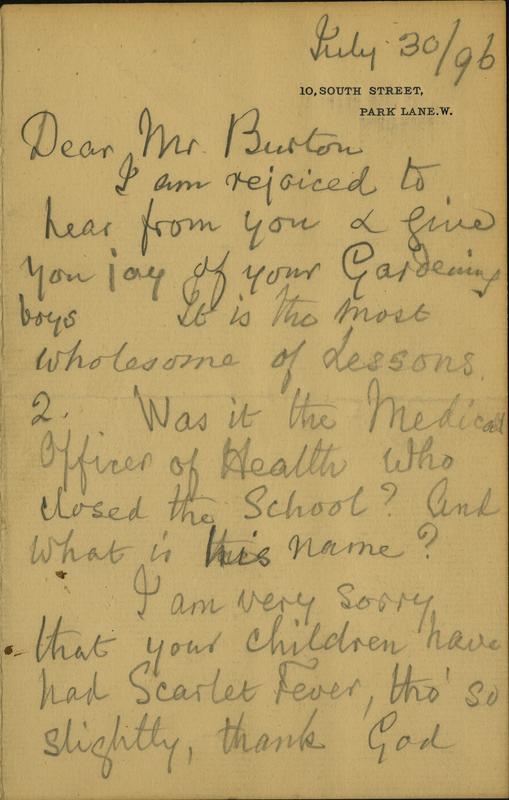 July 30/96
10, SOUTH STREET,
PARK LANE. W.
Dear Mr. Burton
I am rejoiced to
hear from you & give
you joy of your Gardening
boys It is the most
wholesome of Lessons.
2. Was it the Medical
Officer of Health who
closed the School? And
what is his name?
I am very sorry
that your children have
had Scarlet Fever, tho' so
slightly, thank God